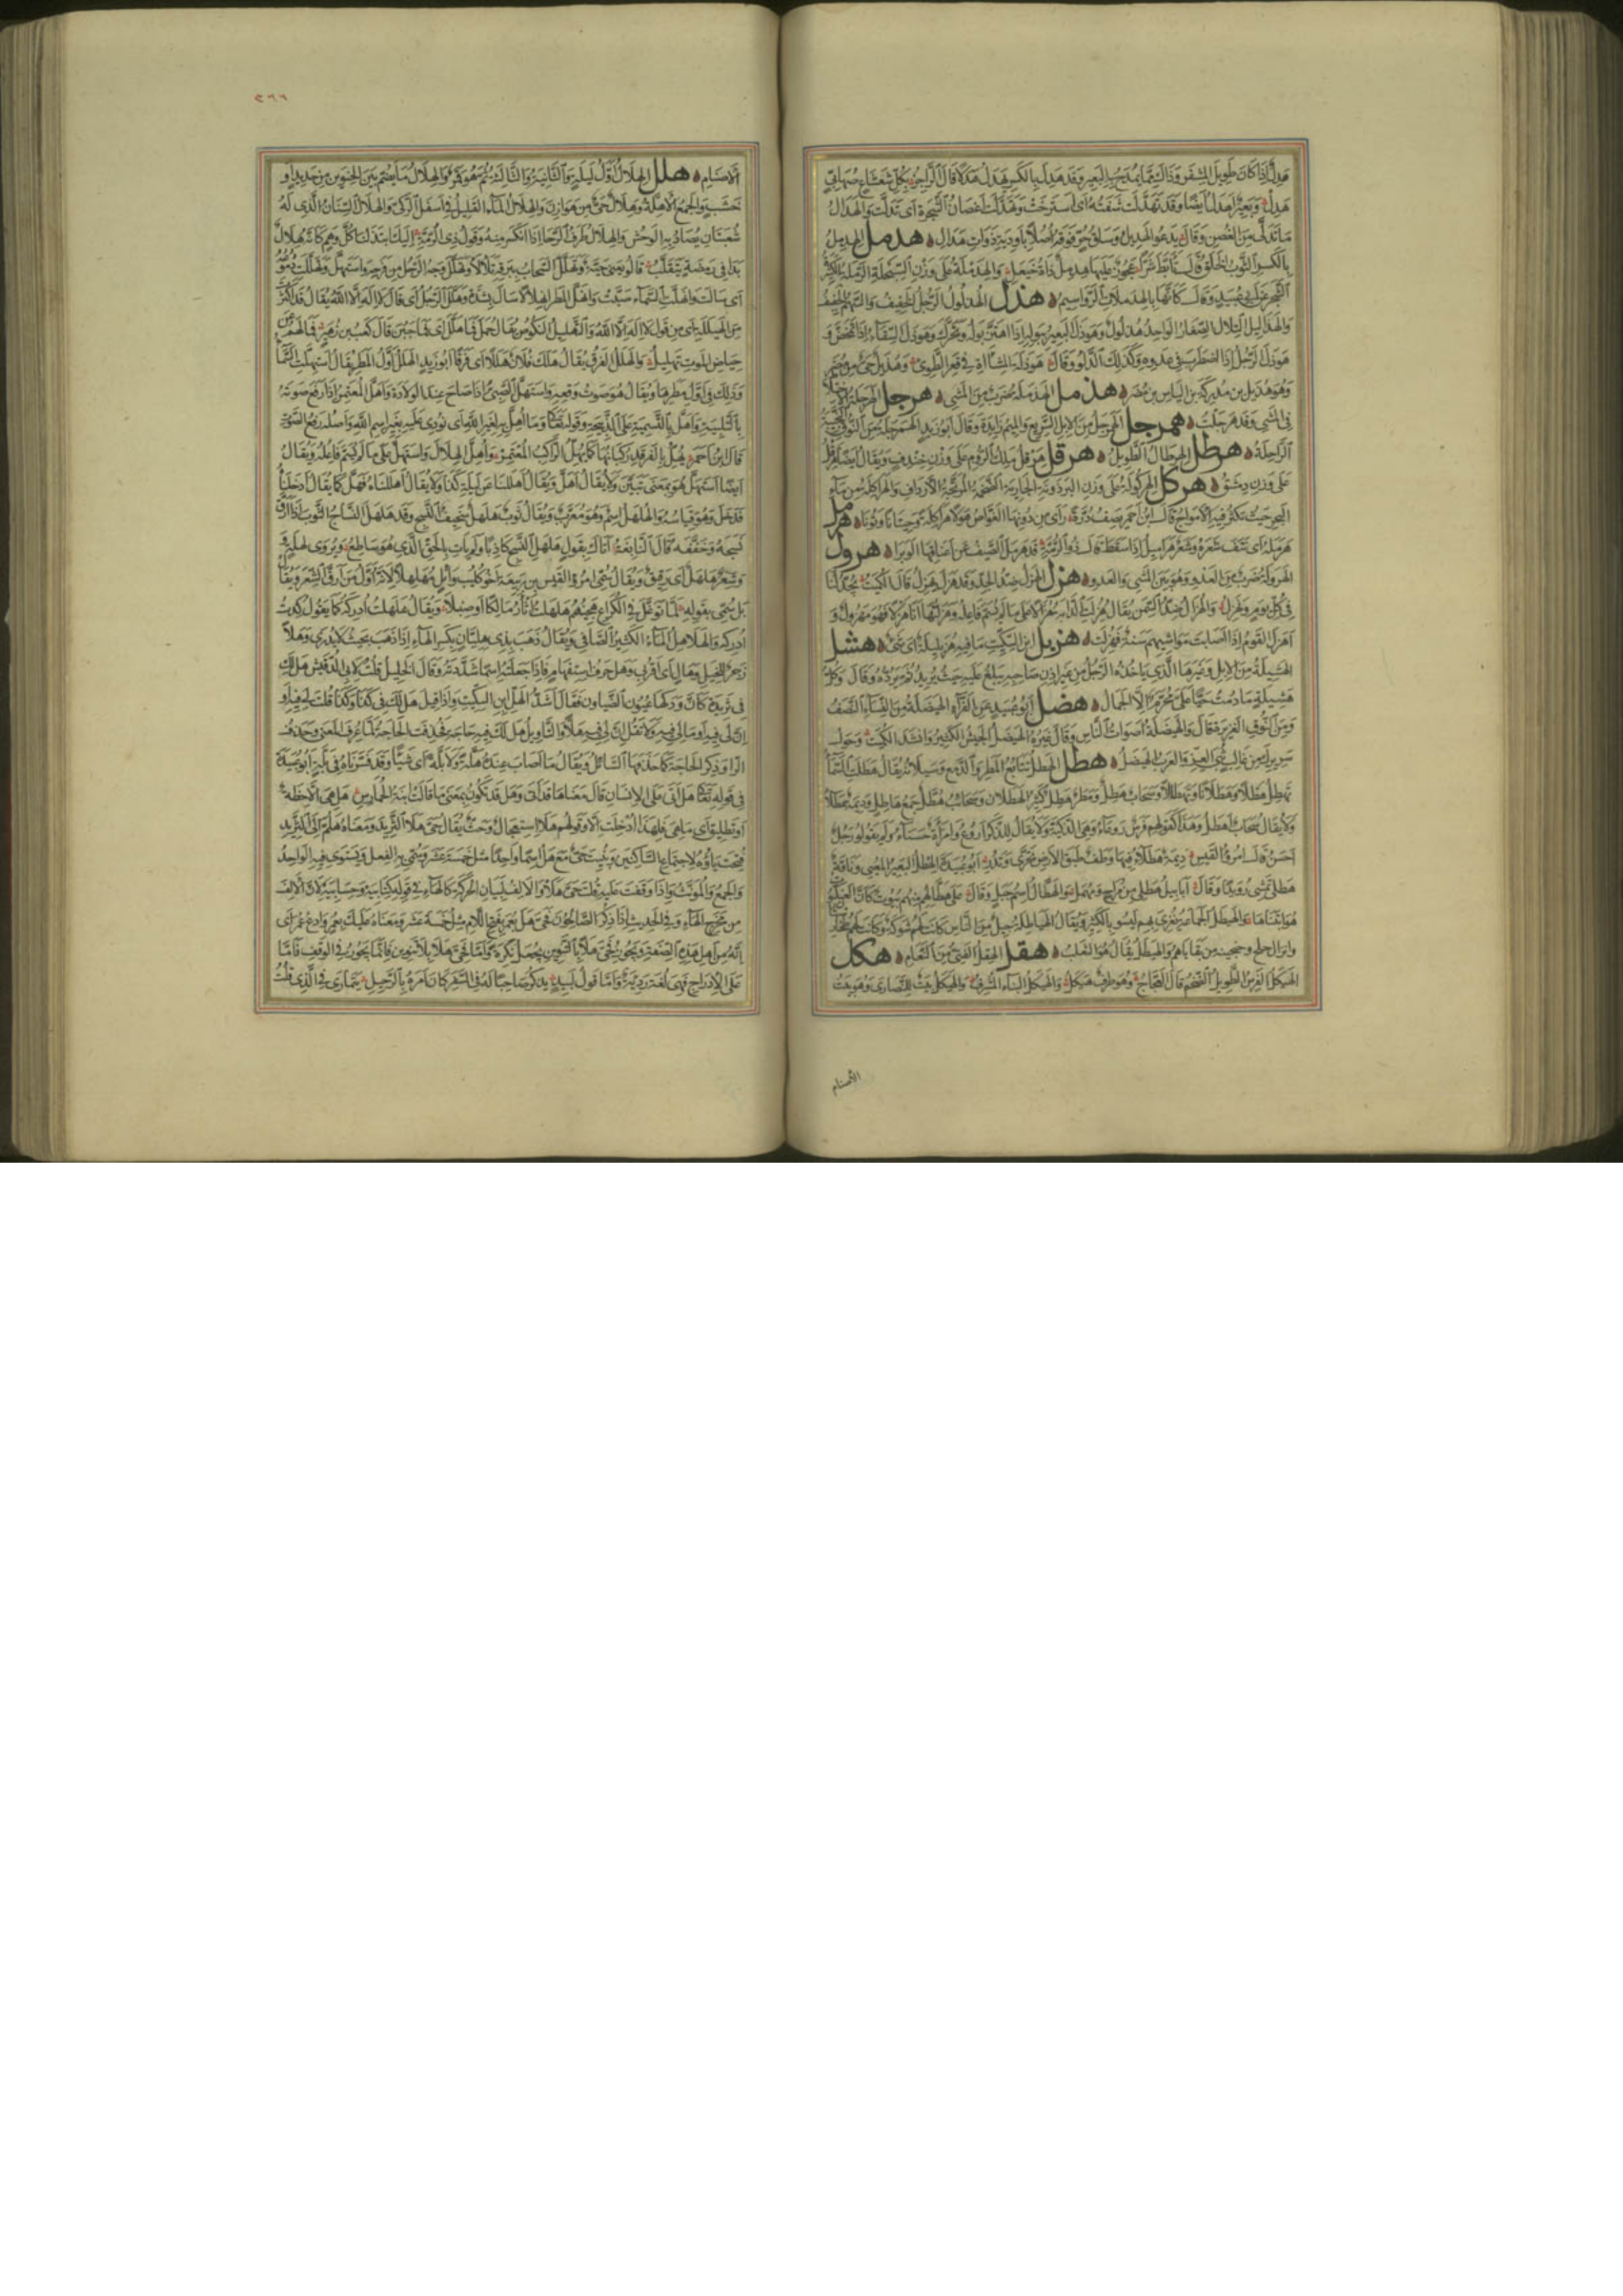 هدل اذا كان طويل المشفر وذلك مما يمدح به البعير وقد هدل بالكسر يهدل هدلا قال الراجز بكل شعشاع صهابي
هدل وبعير اهدل ايضا وقد تهدلت شفته اى استرخت وتهدلت اغصان الشجرة اى تدلت والهدال
ما تدلى من الغصن وقال يدعو الهديل وساق حر فوقه اصلا باودية ذوات هدال هدمل الهدمل
بالكسر الثوب الخلق قال تأبط شرا عجوز عليها هدمل ذات خيعل والهدملة على وزن السبحلة الرملة الكثيرة
الشجر عن ابى عبيد وقال كانها بالهدملات الرواسيم هذل الهذلول الرجل الخفيف والسهم الخفيف
والهذاليل التلال الصغار الواحد هذلول وهوذل البعير ببوله اذا اهتز بوله وتحرك وهوذل السقاء اذا تمخض و
هوذل الرجل اذا اضطرب فى عدوه وكذلك الدلو وقال هوذلة المشآة فى قعر الطوى وهذيل حى من مضر
وهو هذيل بن مدركة بن الياس بن مضر هذمل الهذملة ضرب من المشى هرجل الهرجلة الاختلاط
فى المشى وقد هرجلت همرجل الهمرجل من الابل السريع والميم زايدة وقال ابو زيد الهمرجلة من النوق النجيبة
الراحلة هرطل الهرطال الطويل هرقل هرقل ملك الروم على وزن خندف ويقال ايضا هرقل
على وزن دمشق هركل الهركولة على وزن البرذونة الجارية الضخمة المرتجة الارداف والهراكلة من ماء
البحر حيث تكثر فيه الامواج قال ابن احمر يصف درة راى من دونها الغواص هولا هراكلة وحيتانا ونونا هرمل
هرمله اى نتف شعره وشعر هراميل اذا سقط قال ذو الرمة قد هرمل الصيف عن اعناقها الوبرا هرول
الهرولة ضرب من العدو وهو بين المشى والعدو هزل الهزل ضد الجد وقد هزل يهزل قال الكميت يجد لنا
فى كل يوم ويهزل والهزال ضد السمن يقال هزلت الدابة هزالا على ما لم يسم فاعله وهزلتها انا هزلا فهو مهزول و
اهزل القوم اذا اصابت مواشيهم سنة فهزلت هزبل ابن السكيت ما فيه هزبليلة اى شئ هشل
الهشيلة من الابل وغيرها الذى ياخذه الرجل من غير اذن صاحبه يبلغ عليه حيث يريد ثم يرده وقال وكل
هشيلة ما دمت حيا على محرم الا الجمال هضل ابو عبيد عن الفراء الهيضلة من النساء النصف
ومن النوق الغزيرة قال والهيضلة اصوات الناس وقال غيره الهيضل الجيش الكثير وانشد الكميت وحول
سريرك من غالب ثبى العز والعرب الهيضل هطل الهطل تتابع المطر والدمع وسيلانه يقال هطلت السماء
تهطل هطلا وهطلانا وتهطالا وسحاب هطل ومطر هطل كثير الهطلان وسحائب هطل جمع هاطل وديمة هطلاء
ولا يقال سحاب اهطل وهذا كقولهم فرس روعاء وهى الذكية ولا يقال للذكر اروع وامراة حسناء ولم يقولوا رجل
احسن قال امرؤ القيس ديمة هطلاء فيها وطف طبق الارض تحرى وتدر ابو عبيدة الهطل البعير المعيى وناقة
هطلى تمشى رويدا وقال ابابيل هطلى من مراح ومهمل والهطال اسم جبل وقال على هطالهم منهم بيوت كان العنكبوت
هو ابتناها والهيطل الجماعة يغزى بهم ليسو بالكثير ويقال الهياطلة جيل من الناس كانت لهم شوكة وكانت لهم بخار
الهيكل الفرس الطويل الضخم قال العجاج وهو طرف هيكل والهيكل البناء المشرف والهيكل بيت للنصارى وهو بيت
الاصنام
٣٦٦
الاصنام هلل الهلال اول ليلة والثانية والثالثة ثم هو قمر والهلال ما يضم بين الحنوين من حديد او
خشب والجمع الاهلة وهلال حى من هوازن والهلال الماء القليل فى اسفل الركى والهلال السنان الذى له
شعبتان يصاد به الوحش والهلال طرف الرحا اذا انكسر منه وقول ذى الرمة اليك ابتذلنا كل وهم كانه هلال
بدا فى رمضة يتقلب قالوا يعنى حية وتهلل السحاب ببرقه تلألأ وتهلل وجه الرجل من فرحه واستهل وتهللت دموعه
اى سالت وانهلت السماء صبت وانهل المطر انهلالا سال بشدة وهلل الرجل اى قال لا اله الا الله يقال قد اكثرت
من الهيللة اى من قول لا اله الا الله والتهليل النكوص يقال حمل فما هلل اى فما جبن قال كعب بن زهير فما لهم عن
حياض الموت تهليل والهلل الفرق يقال هلك فلان هللا اى فرقا ابو زيد الهلل اول المطر يقال استهلت السماء
وذلك فى اول مطرها ويقال هو صوت وقعه واستهل الصبى اذا صاح عند الولادة واهل المعتمر اذا رفع صوته
بالتلبية واهل بالتسمية على الذبيحة وقوله تعالى وما اهل به لغير الله اى نودى عليه بغير اسم الله واصله رفع الصوت
قال ابن احمر يهل بالفرقد ركبانها كما يهل الراكب المعتمر واهل الهلال واستهل على ما لم يسم فاعله ويقال
ايضا استهل هو بمعنى تبين ولا يقال اهل ويقال اهللنا عن ليلة كذا ولا يقال اهللناه فهل كما يقال ادخلناه
فدخل وهو قياسه والهلهل اسم وهو معرب ويقال ثوب هلهل سخيف النسج وقد هلهل النساج الثوب اذا ارق
نسجه وخففه قال النابغة اتاك بقول هلهل النسج كاذبا ولم يات بالحق الذى هو ساطع ويروى لهله
وشعر هلهل اى رقيق ويقال سمى امرؤ القيس بن ربيعة اخو كليب وائل مهلهلا لانه اول من ارق الشعر ويقال
بل سمى بقوله لما توغل فى الكراع هجينهم هلهلت اثأر مالكا او صنبلا ويقال هلهلت ادركه كما يقول كدت
ادركه والهلاهل الماء الكثير الصافى ويقال ذهب بذى هليان بكسر الهاء اذا ذهب بحيث لا يدرى وهلا
زجر للخيل وهال اى اقربى وهل حرف استفهام فاذا جعلته اسما شددته وقال الخليل قلت لابى الدقيش هل لك
فى ثريدة كان ودكها عيون الضياون فقال اشد الهل ابن السكيت واذا قيل هل لك فى كذا وكذا قلت لى فيه او
ان لى فيه او ما لى فيه ولا تقل ان لى فيه هلا والتاويل هل لك فيه حاجة فحذفت الحاجة لما عرف المعنى وحذف
الراد ذكر الحاجة كما حذفها السائل ويقال ما اصاب عنده هلة ولا بلة اى شيا وقد فسرناه فى بلة ابو عبيدة
فى قوله تعالى هل اتى على الانسان قال معناها قد اتى وهل قد تكون بمعنى ما قالت ابنة الحمارس هل هى الا حظة
او تطليق اى ما هى فلهذا ادخلت الا وقولهم هلا استعجال وحث يقال حى هلا الثريد ومعناه هلم الى الثريد
فتحت ياؤه لاجتماع الساكنين وبنيت حى مع هل اسما واحدا مثل خمسة عشر وسمى به الفعل ويستوى فيه الواحد
والجمع والمونث واذا وقفت عليه قلت حى هلا والالف لبيان الحركة كالهاء فى قوله كتابيه وحسابيه لان الالف
من مخرج الهاء وفى الحديث اذا ذكر الصالحون فحى هل بعمر بفتح اللام مثل خمسة عشر ومعناه عليك بعمر وادع عمر اى
انه من اهل هذه الصفة ويجوز فحى هلا بالتنوين يجعل نكرة واما حى هلا بلا تنوين فانما يجوز فى الوقف فاما
على الادراج فهى لغة ردية واما قول لبيد يذكر صاحبا له فى السفر كان امره بالرحيل يتمارى فى الذى قلت